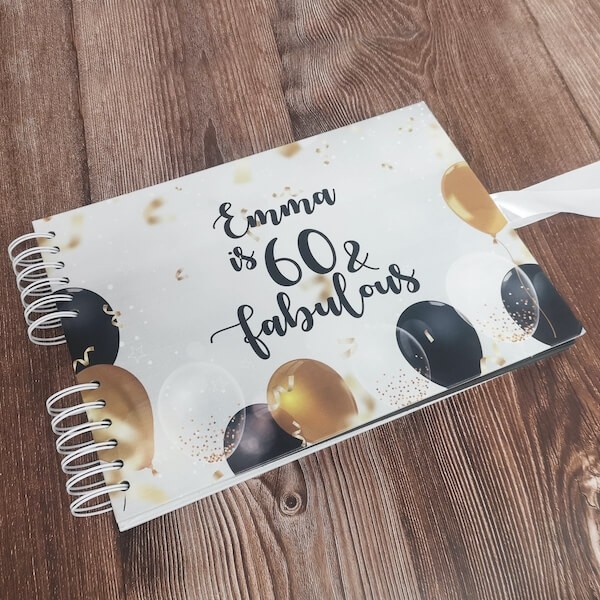 Emma
is 60 &
fabulous